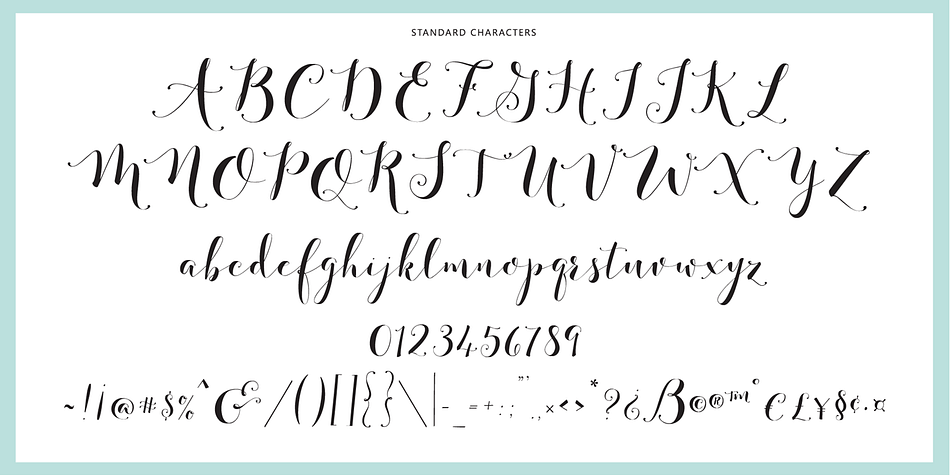 STANDARD CHARACTERS
ABCDEFGHIJKL
MNOPQRSTUVWXYZ
abcdefghijklmnopqrstuvwxyz
0123456789
~!¡@#$%^&/()[]{}\|-_=+:;"',.,×<>*?¿ß©®™°€£¥§¢·¤